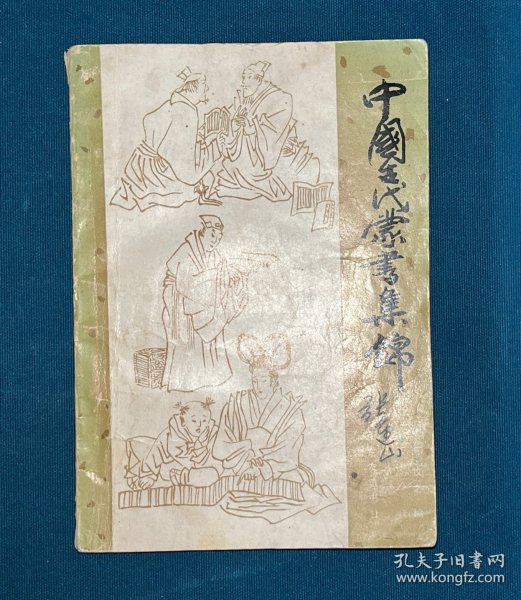 中國古代蒙書集錦
张
山
孔夫子旧書网
www.kongfz.com